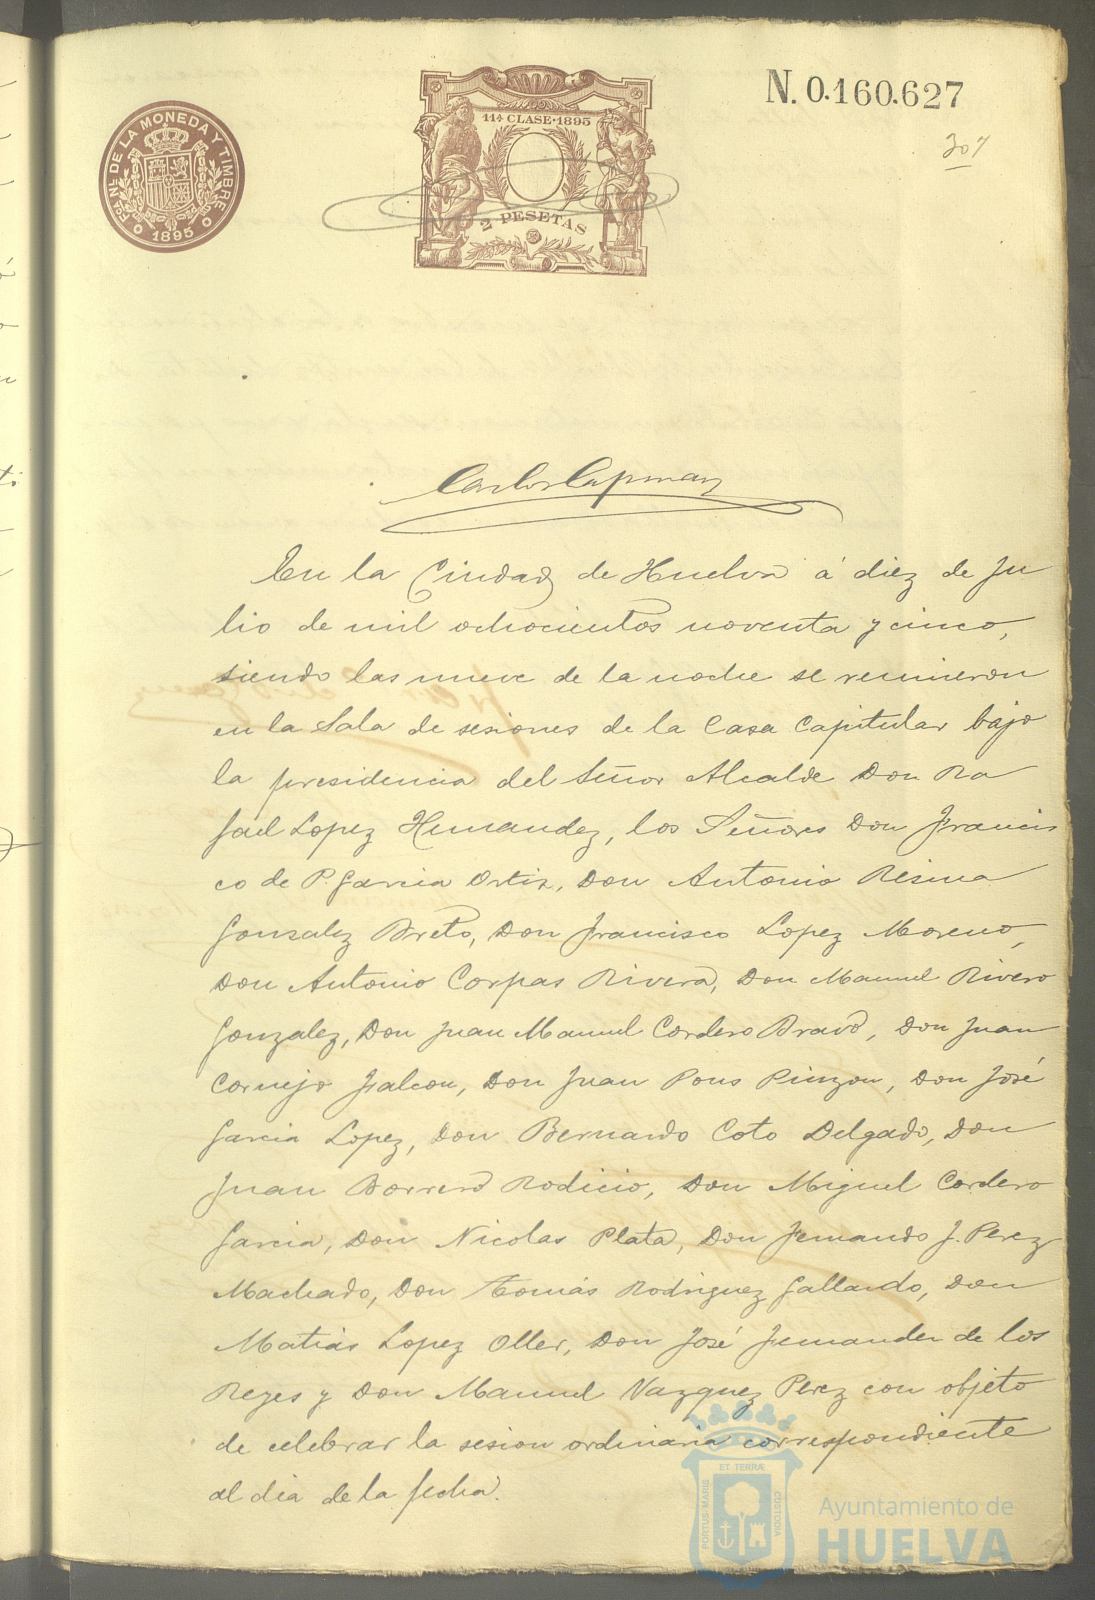 N. 0.160.627
307
Fca. Nl. DE LA MONEDA Y TIMBRE
1895
11ª CLASE·1895
2 PESETAS
Carlos Capman
En la Ciudad de Huelva á diez de Ju
lio de mil ochocientos noventa y cinco,
siendo las nueve de la noche se reunieron
en la Sala de sesiones de la Casa Capitular bajo
la presidencia del Señor Alcalde Don Ra
fael Lopez Hernandez, los Señores Don Francis
co de P. Garcia Ortiz, Don Antonio Resina
Gonzalez Prieto, Don Francisco Lopez Moreno,
Don Antonio Corpas Rivera, Don Manuel Rivero
Gonzalez, Don Juan Manuel Cordero Bravo, Don Juan
Cornejo Falcon, Don Juan Pons Pinzon, Don José
Garcia Lopez, Don Bernardo Coto Delgado, Don
Juan Borrero Rodicio, Don Miguel Cordero
Garcia, Don Nicolas Plata, Don Fernando J. Perez
Machado, Don Tomás Rodriguez Gallardo, Don
Matias Lopez Oller, Don José Fernandez de los
Reyes y Don Manuel Vazquez Perez con objeto
de celebrar la sesion ordinaria correspondiente
al dia de la fecha.
PORTUS MARIS ET TERRÆ CUSTODIA
Ayuntamiento de
HUELVA